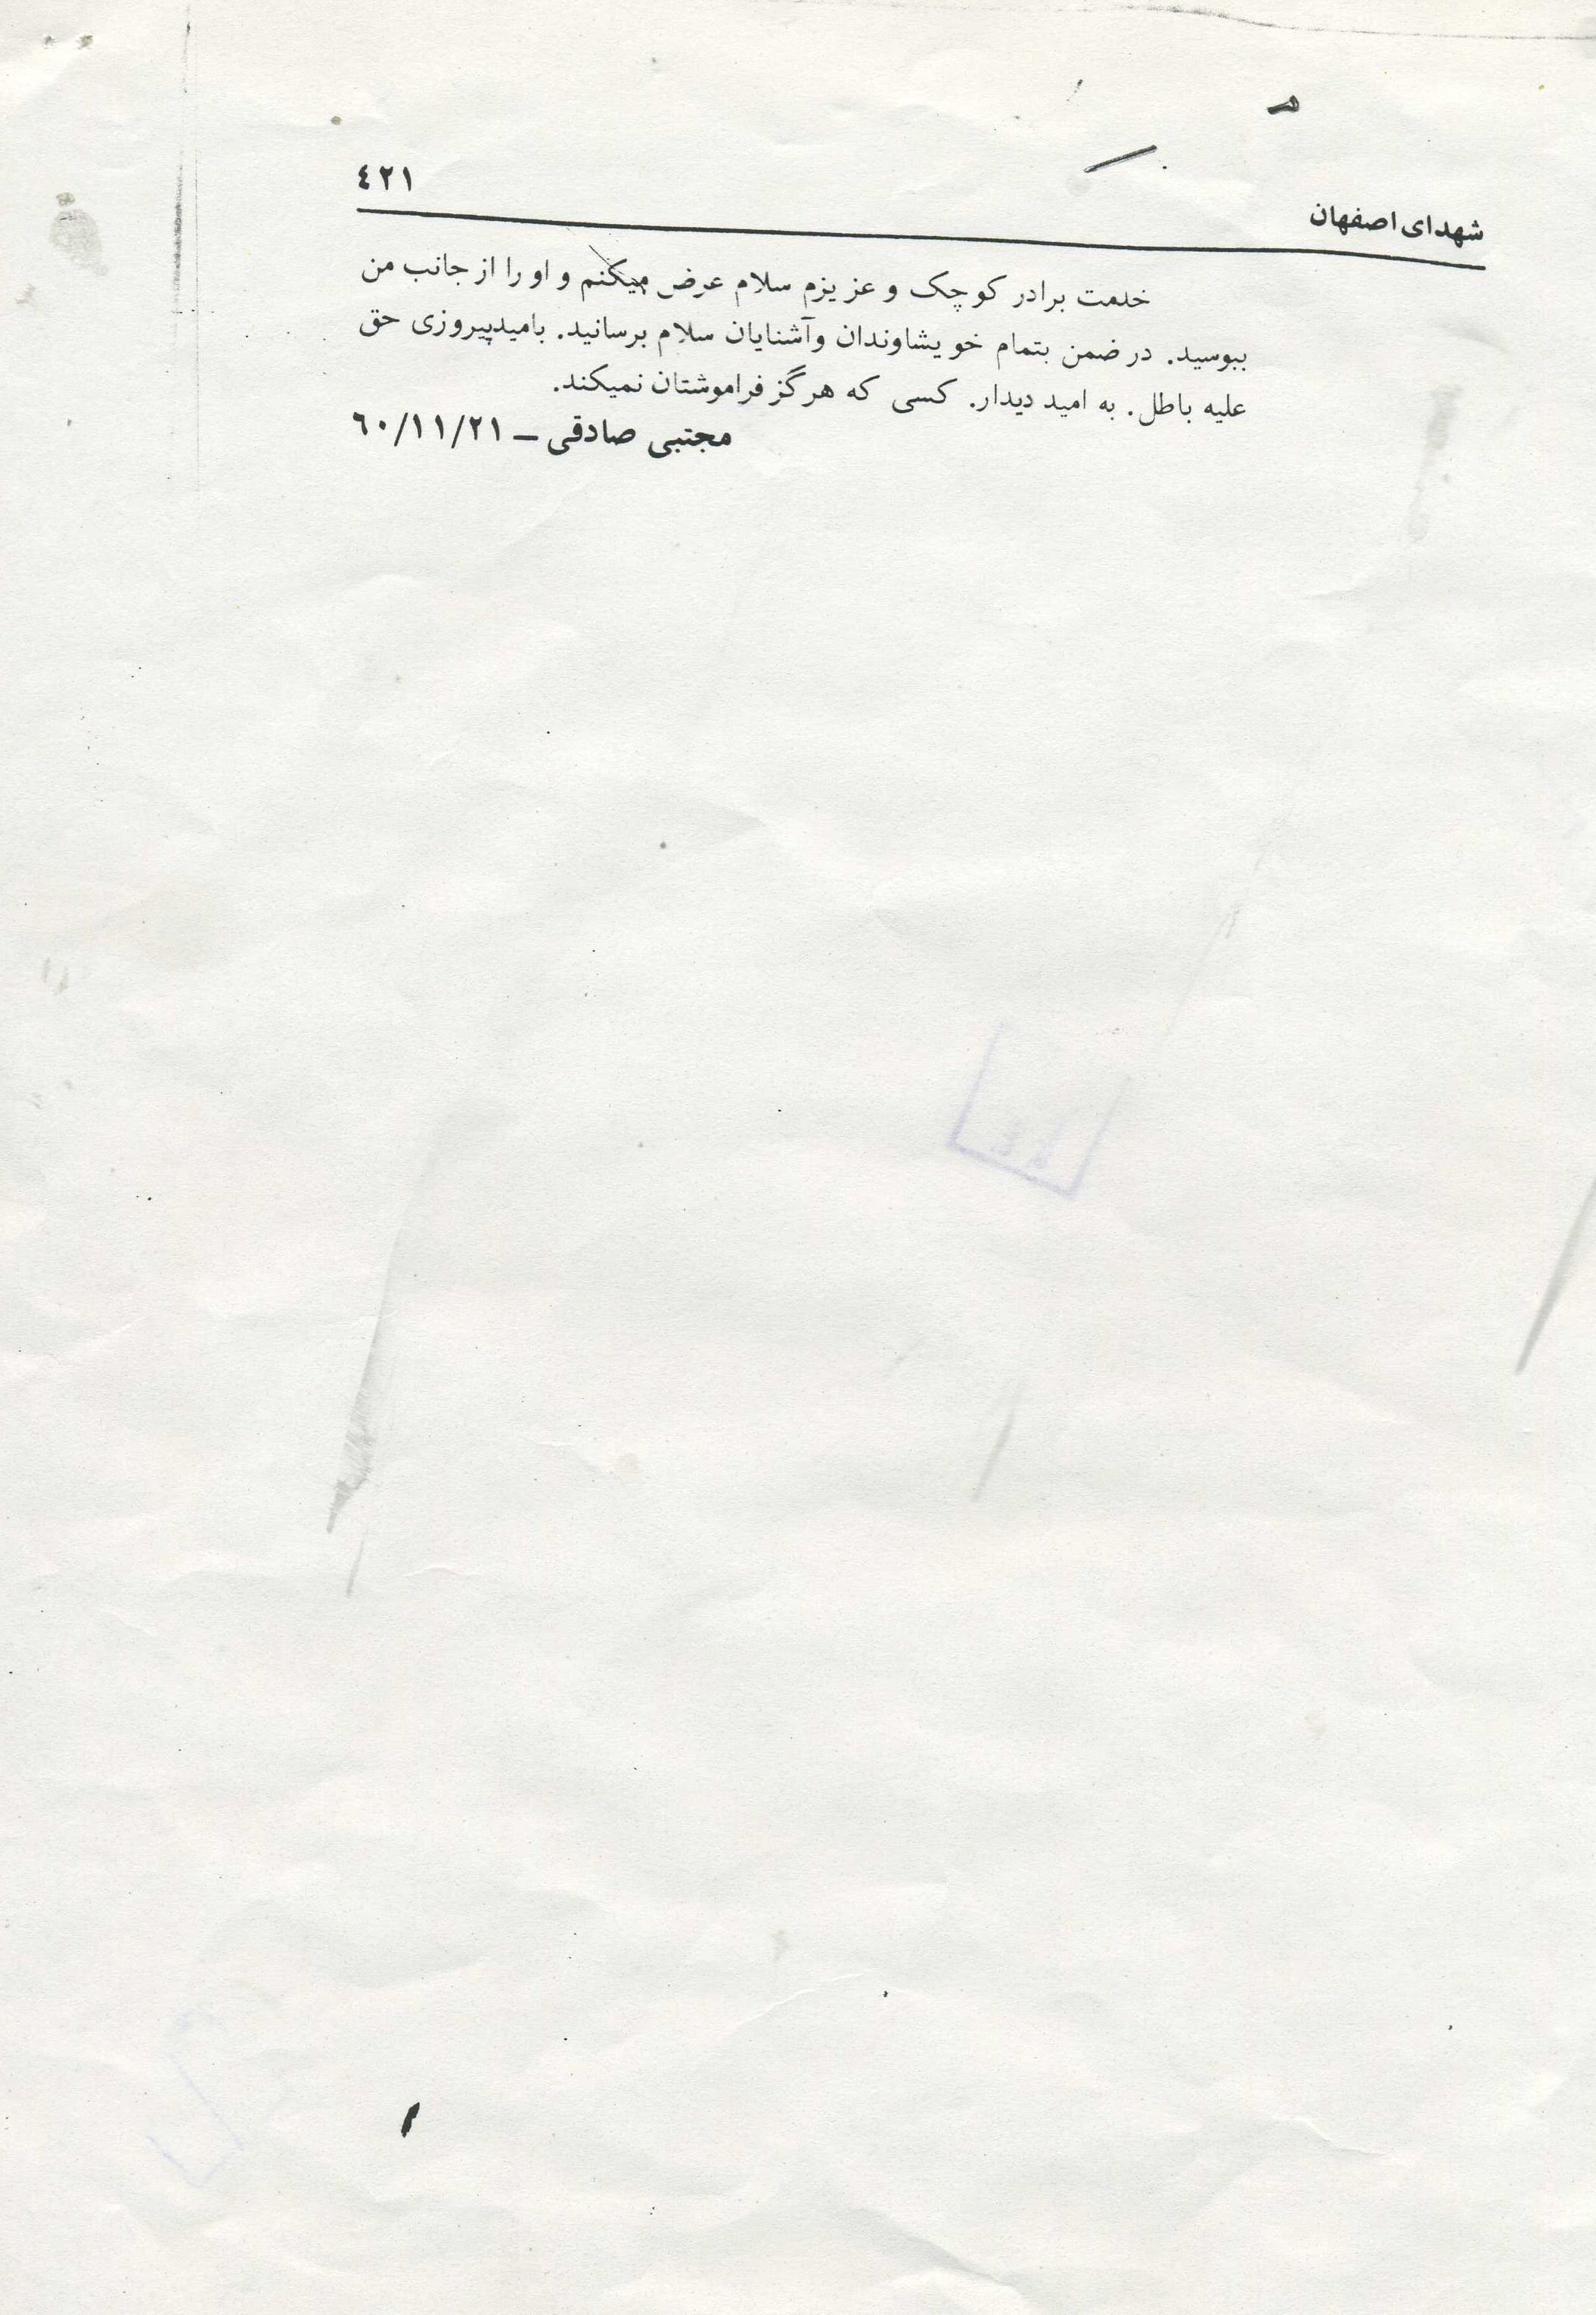 شهدای اصفهان ٤٢١
خدمت برادر کوچک و عزیزم سلام عرض میکنم و او را از جانب من
ببوسید. در ضمن بتمام خویشاوندان وآشنایان سلام برسانید. بامیدپیروزی حق
علیه باطل. به امید دیدار. کسی که هرگز فراموشتان نمیکند.
مجتبی صادقی ــ ٦٠/١١/٢١